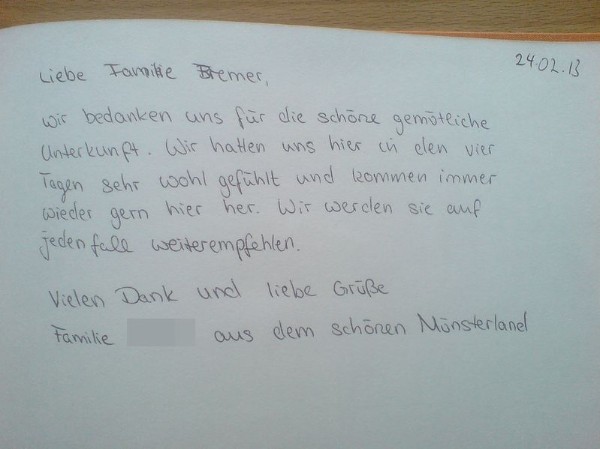 24.02.13
Liebe Familie Bremer,
wir bedanken uns für die schöne gemütliche
Unterkunft. Wir hatten uns hier in den vier
Tagen sehr wohl gefühlt und kommen immer
wieder gern hier her. Wir werden sie auf
jeden fall weiterempfehlen.
Vielen Dank und liebe Grüße
Familie aus dem schönen Münsterland